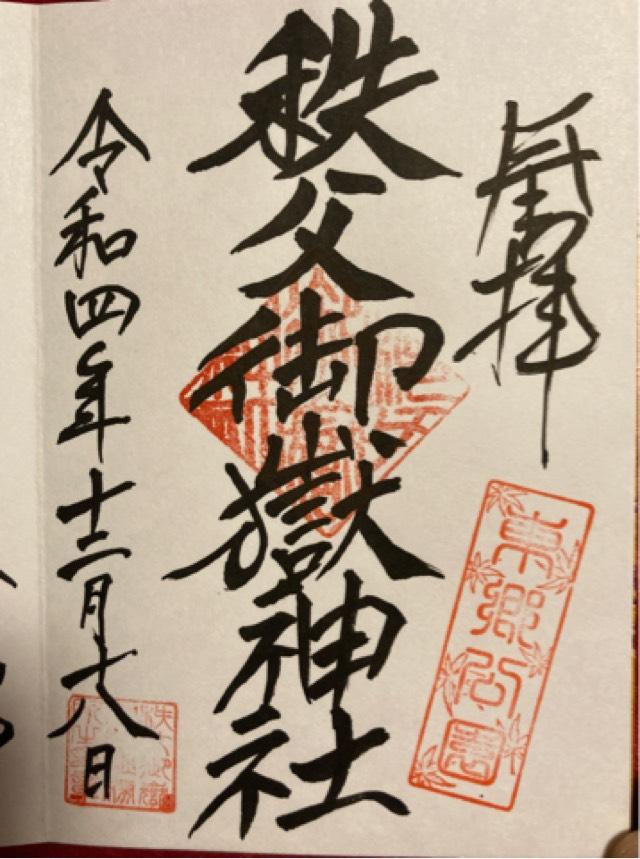 登拝
東郷公園
秩父御嶽神社
令和四年十二月十八日